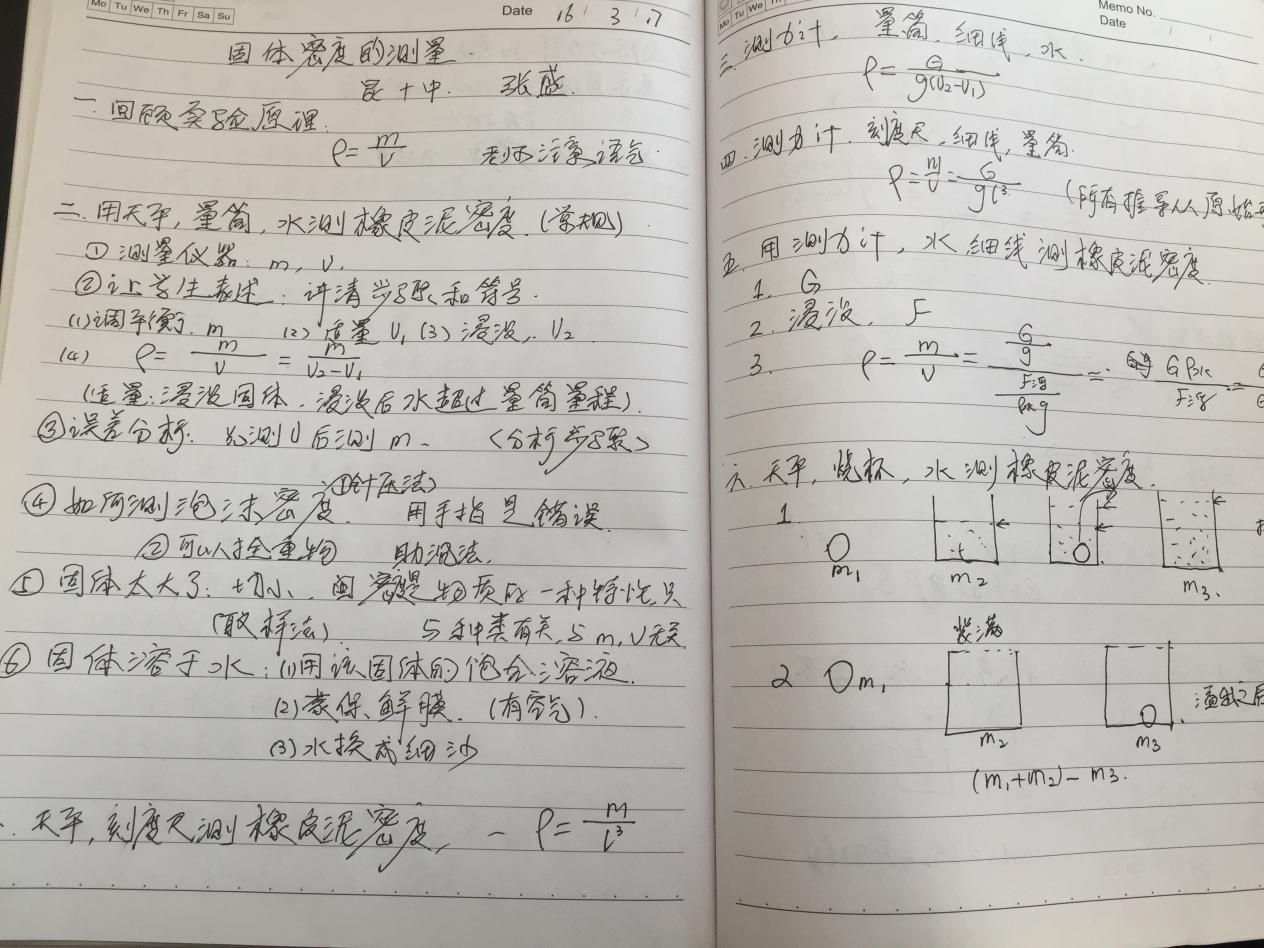 Mo Tu We Th Fr Sa Su
Date 16 / 3 / 17
固体密度的测量
昆十中. 张盛.
一. 回顾实验原理.
ρ = m/V 老师注意语气.
二. 用天平, 量筒, 水测橡皮泥密度. (常规)
① 测量仪器: m, V.
② 让学生表述: 讲清步骤和符号.
(1) 调平衡, m (2) 适量 V₁ (3) 浸没, V₂
(4) ρ = m/V = m/(V₂-V₁)
(适量: 浸没固体, 浸没后水超过量筒量程).
③ 误差分析. 先测V后测m. <分析步骤>
①针压法
④ 如何测泡沫密度. 用手指是错误.
② 可以栓重物 助沉法.
⑤ 固体太大了: 切小, 密度是物质的一种特性, 只
(取样法) 与种类有关, 与m, V无关
⑥ 固体溶于水: (1) 用该固体的饱和溶液.
(2) 蒙保鲜膜. (有空气).
(3) 水换成细沙
天平, 刻度尺测橡皮泥密度, — ρ = m/l³
Mo Tu We
Memo No.
Date / /
三. 测力计, 量筒, 细线, 水.
ρ = G/g(V₂-V₁)
四. 测力计, 刻度尺, 细线, 量筒.
ρ = m/V = G/gl³ (所有推导从原始
五. 用测力计, 水 细线测橡皮泥密度
1. G
2. 浸没, F
3. ρ = m/V = (G/g)/(F浮/ρ水g) = Gρ水/F浮 =
六. 天平, 烧杯, 水测橡皮泥密度.
1.
m₁ m₂ m₃.
装满
2 m₁
m₂ m₃
(m₁+m₂) - m₃.